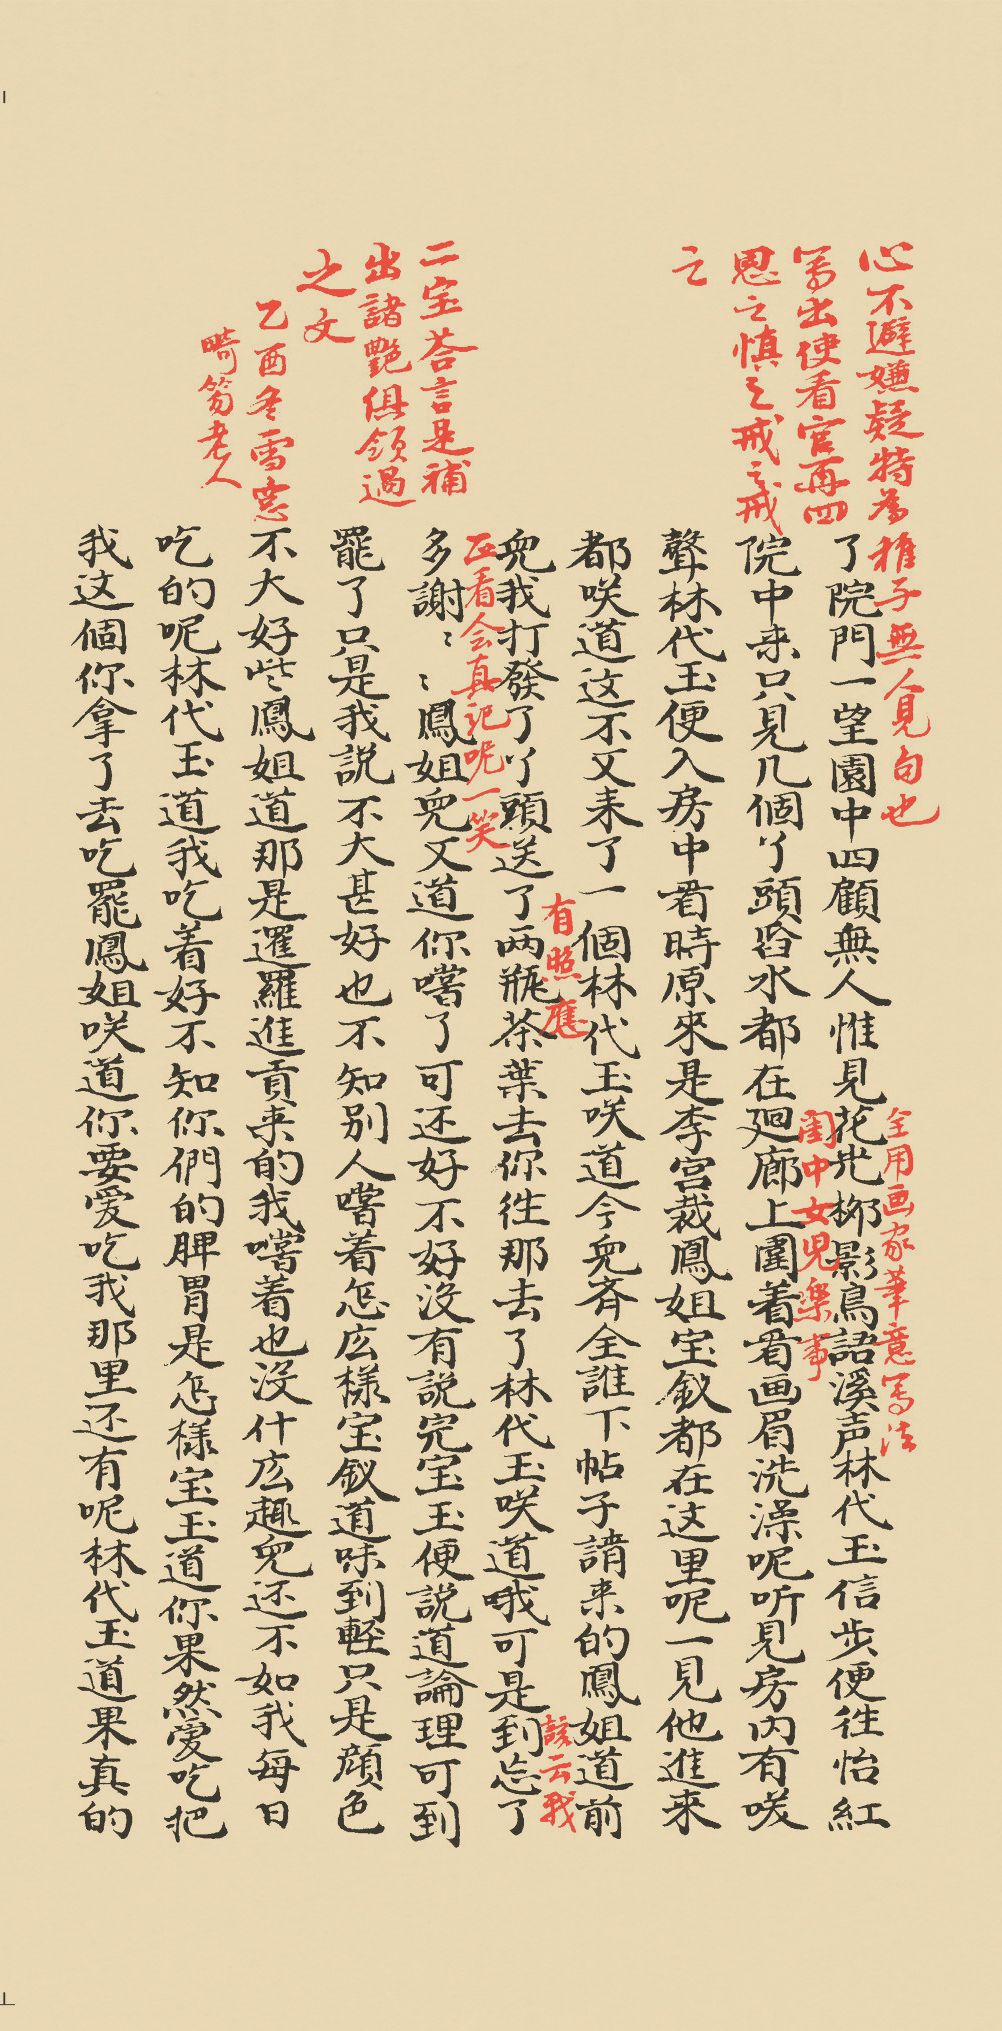 心不避嫌疑特為
写出使看官再四
思之慎之戒之戒
之
二宝荅言是補
出諸艷俱領過
之文
乙酉冬雪窓
畸笏老人
稚子無人見句也
全用画家筆意写法
了院門一望園中四顧無人惟見花光柳影鳥語溪声林代玉信步便往怡紅
閨中女兒樂事
院中来只見几個丫頭舀水都在廻廊上圍着看画眉洗澡呢听見房内有咲
聲林代玉便入房中看時原來是李宮裁鳳姐宝釵都在这里呢一見他進来
都咲道这不又来了一個林代玉咲道今兒斉全誰下帖子請来的鳳姐道前
有照應
該云我
兒我打發了丫頭送了两瓶茶葉去你往那去了林代玉咲道哦可是到忘了
正看会真記呢一笑
多謝〻〻鳳姐兒又道你嚐了可还好不好没有説完宝玉便説道論理可到
罷了只是我説不大甚好也不知别人嚐着怎広樣宝釵道味到輕只是顔色
不大好些鳳姐道那是暹羅進貢来的我嚐着也没什広趣兒还不如我每日
吃的呢林代玉道我吃着好不知你們的脾胃是怎樣宝玉道你果然爱吃把
我这個你拿了去吃罷鳳姐咲道你要爱吃我那里还有呢林代玉道果真的